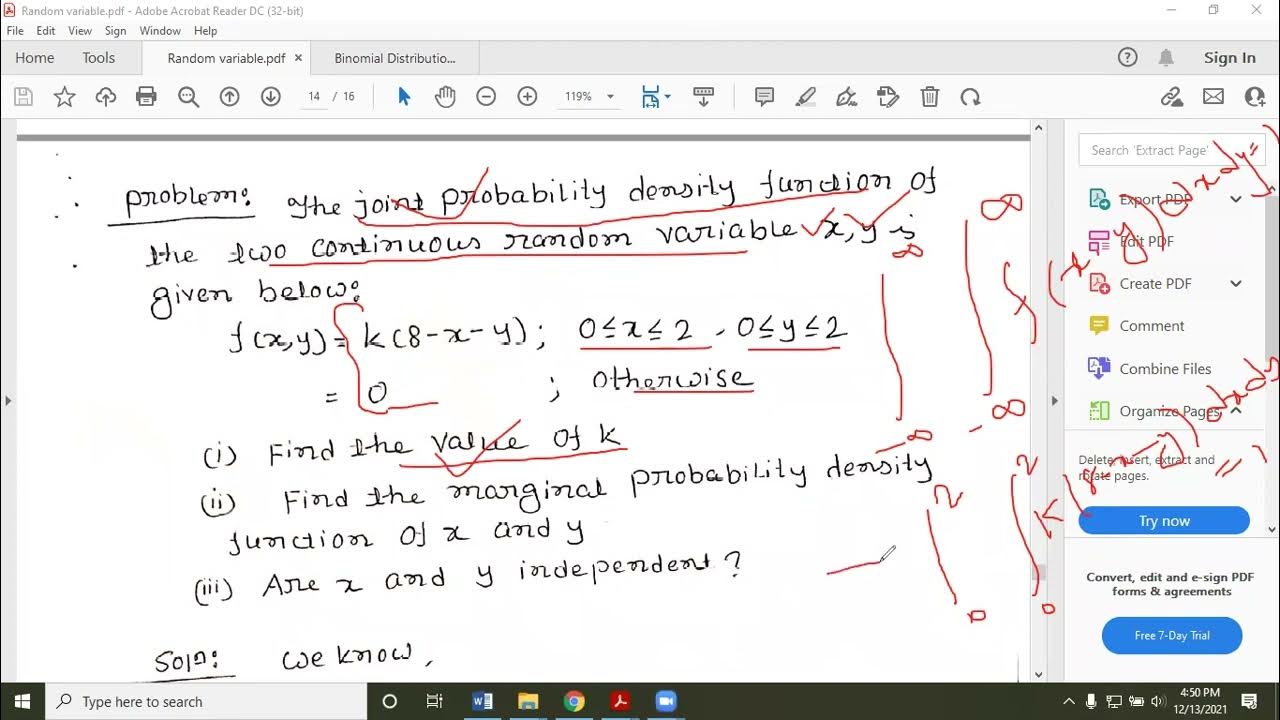 Random variable.pdf - Adobe Acrobat Reader DC (32-bit)
File Edit View Sign Window Help
Home Tools Random variable.pdf × Binomial Distributio... Sign In
14 / 16 119%
Search 'Extract Page'
Export PDF
Edit PDF
Create PDF
Comment
Combine Files
Organize Pages
Delete, insert, extract and
rotate pages.
Try now
Convert, edit and e-sign PDF
forms & agreements
Free 7-Day Trial
problem: The joint probability density function of
the two continuous random variable x, y is
given below:
f(x,y) = k(8-x-y); 0≤x≤2, 0≤y≤2
= 0 ; otherwise
(i) Find the value of k
(ii) Find the marginal probability density
function of x and y
(iii) Are x and y independent?
Soln: we know,
∞ ∞
∫ ∫ f(x,y) dxdy=1
-∞ -∞
2 2
∫ ∫ k(8-x-y) dxdy
0 0
= 1
Type here to search
4:50 PM
12/13/2021